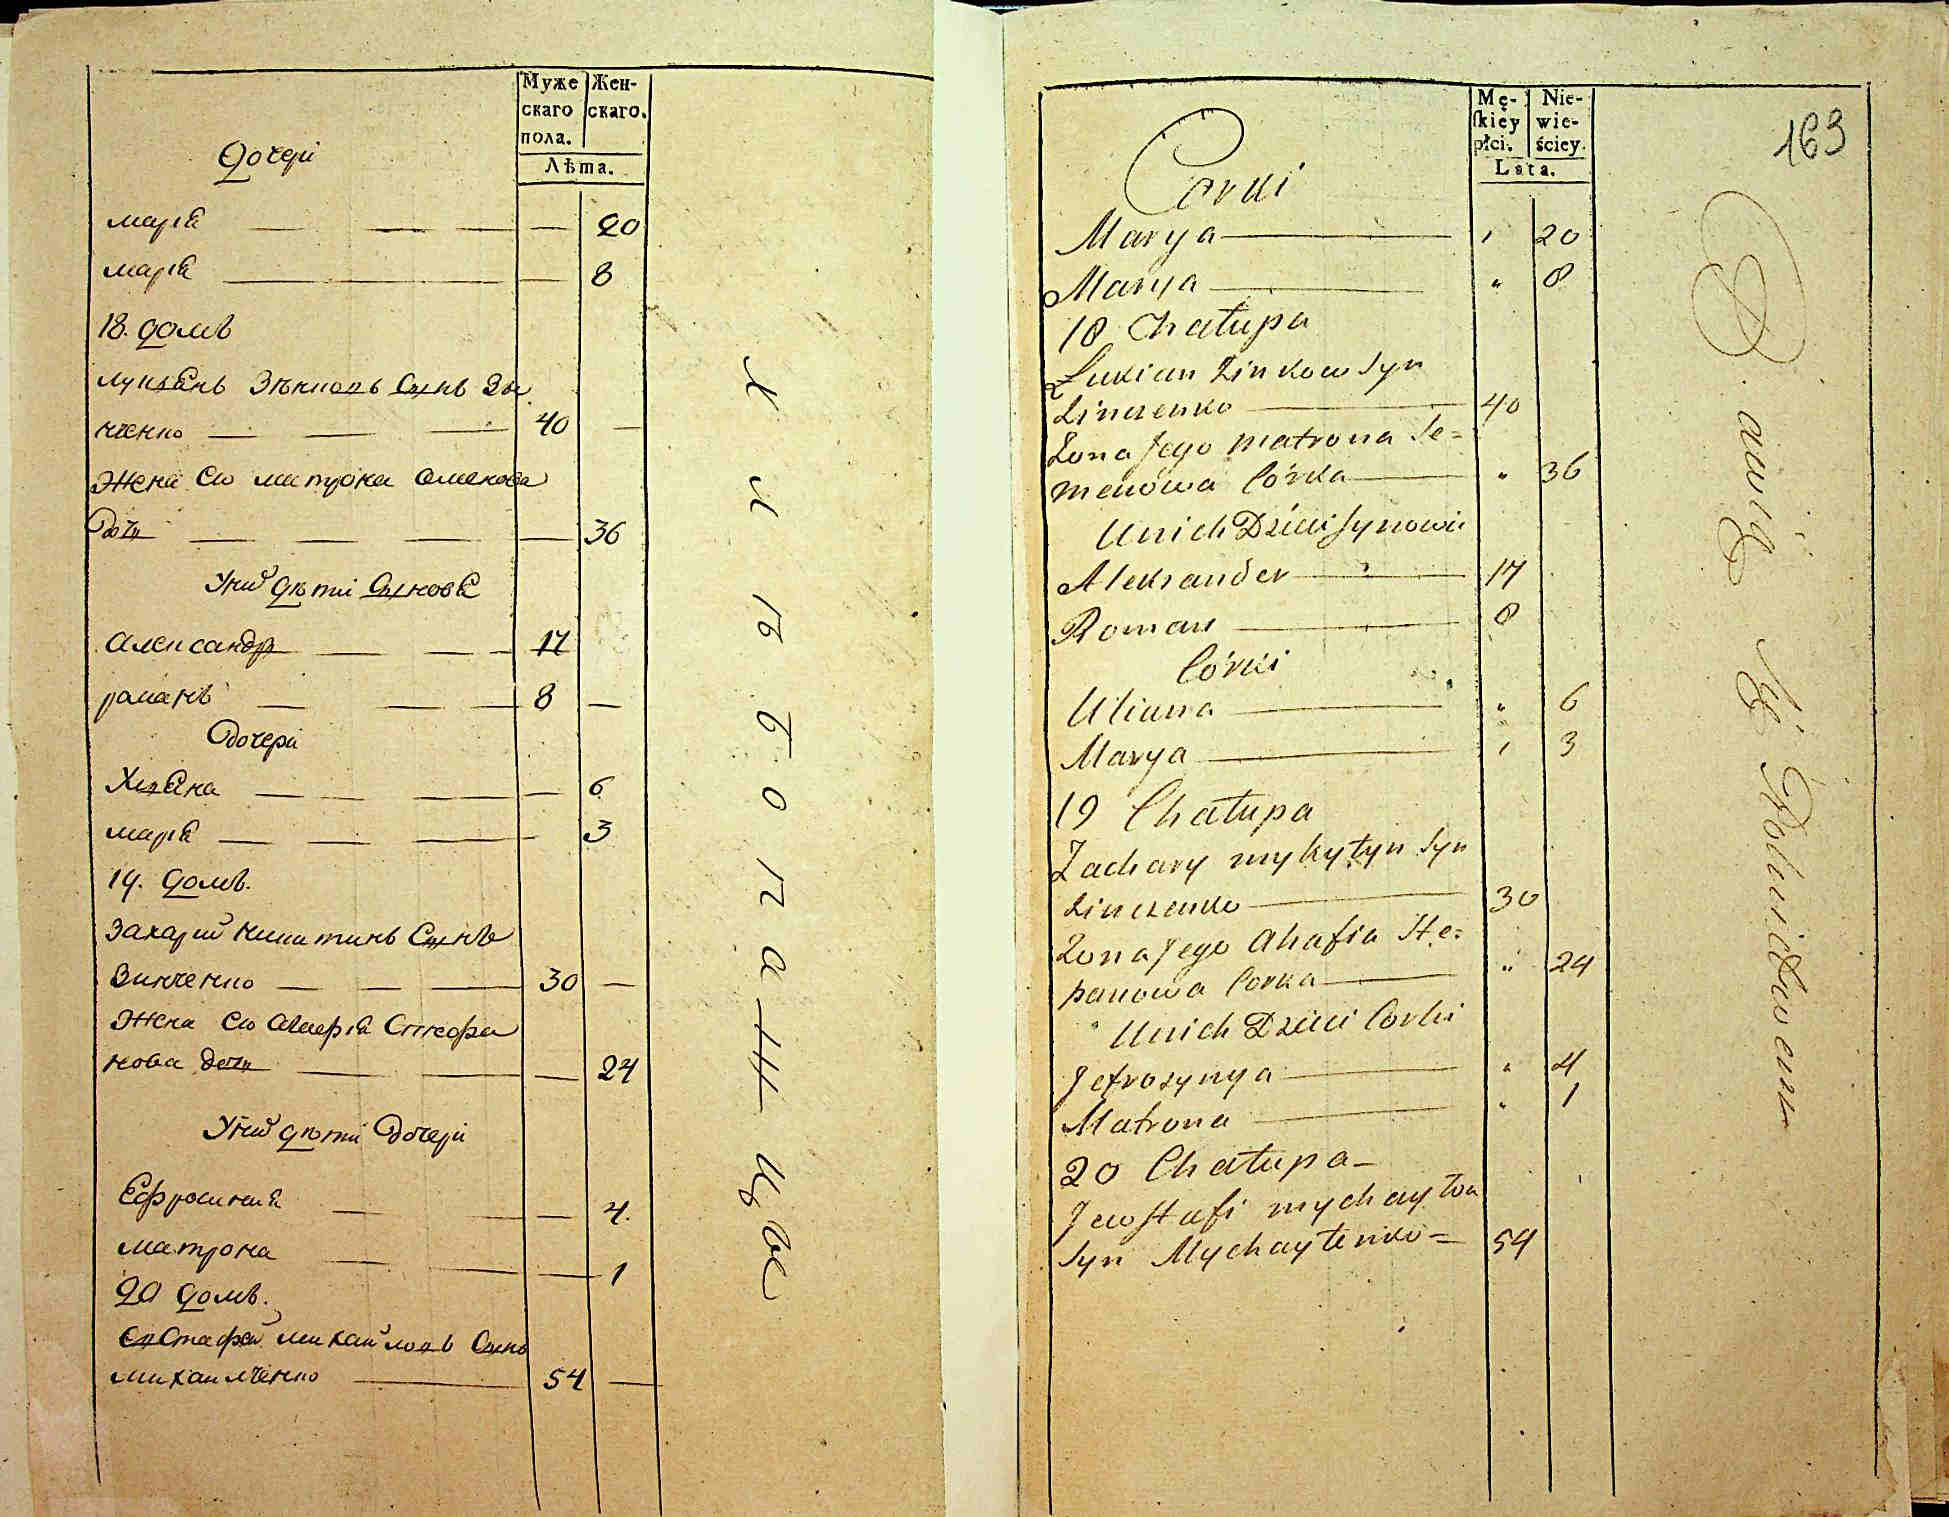 Муже
скаго
пола.
Жен-
скаго.
Лѣта.
Дочери
Марія 20
Марія 8
18. домъ
Лукіянъ Зѣнковъ сынъ Зѣ
нченко 40
Жена его Матрона Семенова
дочь 36
У них дѣти сыновя
Александръ 17
Романъ 8
Дочери
Марія 3
19. домъ.
Захарий Никитинъ сынъ
Зинченко 30
Жена его Агафія Стефа
нова дочь 24
У них дѣти дочери
Ефросинія 4.
Матрона 1
20 домъ.
Евстафий Михайловъ сынъ
Михайленко 54
Хлѣбопашцы
Mę-
skiey
płci.
Nie-
wie-
ściey.
Lata.
163
Corki
Marya 20
Marya 8
18 Chałupa
Łukian Zinkow Syn
Zinczenko 40
Zona Jego Matrona Se=
menówa Córka 36
U nich Dzieci Synowie
Aleksander 17
Roman 8
Córki
Uliana 6
Marya 3
19 Chałupa
Zachary Mykytyn Syn
Zinczenko 30
Zona Jego Ahafia Ste=
panowa Corka 24
U nich Dzieci Corki
Jefrozynya 4
Matrona 1
20 Chałupa
Jewstafi Mychayłow
Syn Mychayłenko = 54
Bawią się Rolnictwem